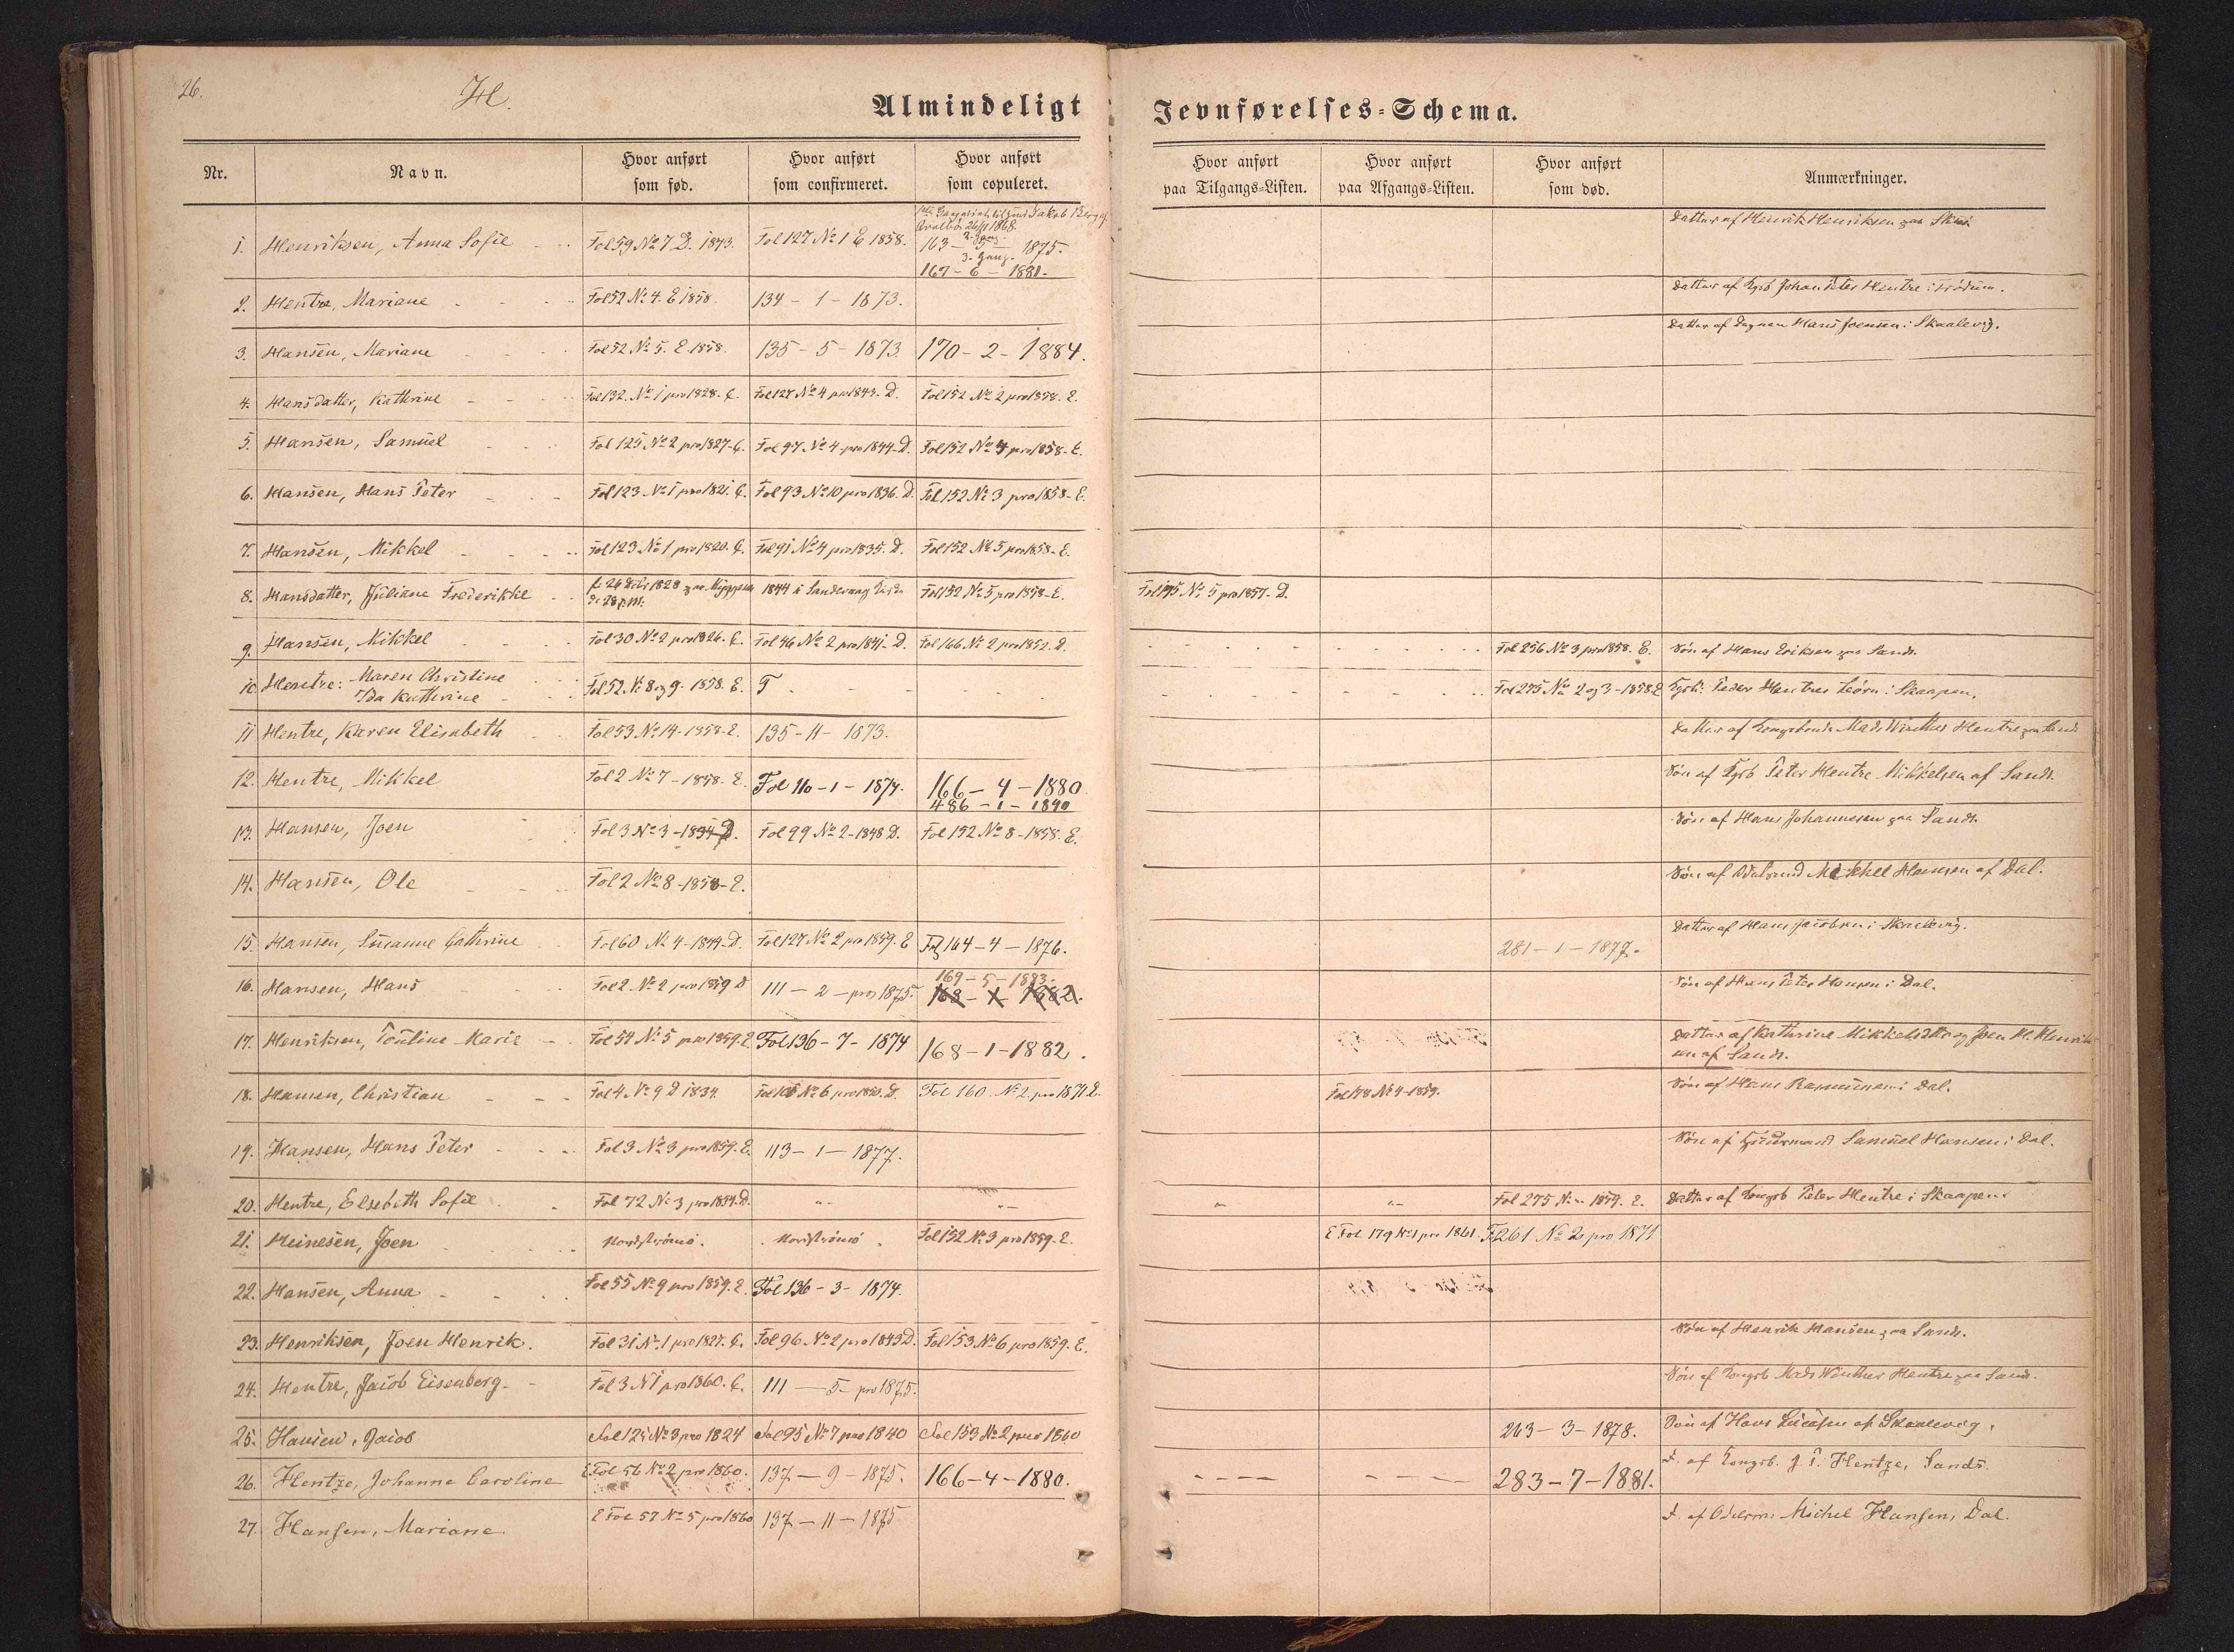 26.
H.
Almindeligt Jevnførelses-Schema.
Nr. Navn. Hvor anført som fød. Hvor anført som confirmeret. Hvor anført som copuleret. Hvor anført paa Tilgangs-Listen. Hvor anført paa Afgangs-Listen. Hvor anført som død. Anmærkninger.
Jakob
Qvalbø 26/11 1868.
1. Henriksen, Anna Sofie Fol 59 No 7 D. 1843. Fol 127 No 1 E 1858. 163 - 5 - 1875. Datter af Henrik Henriksen paa
2. Gang
3. Gang.
167 - 6 - 1881.
2. Hentze, Mariane Fol 52 No 4. E 1858. 134 - 1 - 1873. Datter af Kgsb Johan Peter Hentze i
3. Hansen, Mariane Fol 52 No 5. E 1858. 135 - 5 - 1873. 170 - 2 - 1884. Datter af Hans Joensen i Skaalevig.
4. Hansdatter, Kathrine Fol 132. No 1 pro 1828. C. Fol 127 No 4 pro 1843. D. Fol 152 No 2 pro 1858. E.
5. Hansen, Samuel Fol 125 No 2 pro 1827. C. Fol 97 No 4 pro 1844. D. Fol 152 No 4 pro 1858. E.
6. Hansen, Hans Peter Fol 123 No 5 pro 1821. C. Fol 93 No 10 pro 1836. D. Fol 152 No 3 pro 1858. E.
7. Hansen, Mikkel Fol 123 No 1 pro 1820. C. Fol 91 No 4 pro 1835. D. Fol 152 No 5 pro 1858. E.
8. Hansdatter, Juliane Frederikke f. 26 1828 paa 1844 i Fol 152 No 5 pro 1858. E. Fol 175 No 5 pro 1857. D.
9. Hansen, Mikkel Fol 30 No 2 pro 1826. C. Fol 46 No 2 pro 1841. D. Fol 166 No 2 pro 1852. D. Fol 256 No 3 pro 1858. E. Søn af Hans Eriksen paa Sand.
10. Hentze: Maren Christine
Ida Kathrine Fol 52 No 8 og 9. 1858. E. Fol 275 No 2 og 3 - 1858 E Kgsb. Peder Hentzes Børn i Skaapen.
11 Hentze, Karen Elisabeth Fol 53 No 14 - 1858. E. 135 - 11 - 1873. Datter af Kongsbonde Mads Winther Hentze paa Sand
12. Hentze, Mikkel Fol 2 No 7 - 1858. E. Fol 110 - 1 - 1874. 166 - 4 - 1880 Søn af Kgsb Peter Hentze Mikkelsen af Sand.
486 - 1 - 1890
13. Hansen, Joen Fol 3 No 3 - 1834 D. Fol 99 No 2 - 1848 D. Fol 152 No 8 - 1858. E. Søn af Hans Johannesen paa Sand.
14. Hansen, Ole Fol 2 No 8 - 1858 - E. Søn af Mikkel Hansen af Dal.
15. Hansen, Susanne Cathrine Fol 60 No 4 - 1844. D. Fol 127 No 2 pro 1859. E 164 - 4 - 1876. 281 - 1 - 1877. Datter af Hans Jacobsen i Skaalevig.
16. Hansen, Hans Fol 2 No 2 pro 1859 111 - 2 - pro 1875. 169 - 5 - 1883. Søn af Hans Peter Hansen i Dal.
168 - 1 - 1882.
17. Henriksen, Pouline Marie Fol 54 No 5 pro 1859. E. Fol 136 - 7 - 1874 168 - 1 - 1882. Datter af Kathrine Mikkelsdttr og Joen H. Henrik-
sen af Sand.
18. Hansen, Christian Fol 4 No 9 D 1834. No 6 pro 1850. D. Fol 160 No 2 pro 1871 E. Fol 178 No 4 - 1859. Søn af Hans Rasmussen i Dal.
19. Hansen, Hans Peter Fol 3 No 3 pro 1859. E. 113 - 1 - 1877. Søn af Samuel Hansen i Dal.
20. Hentze, Elsebeth Sofie Fol 72 No 3 pro 1854. D. Fol 275 No 1859. E. Datter af Kongsb Peter Hentze i Skaapen.
21. Heinesen, Joen Nordstrømø. Nordstrømø. Fol 152 No 3 pro 1859. E. E. Fol 179 No 1 pro 1861. F. 261 No 2 pro 1871
22. Hansen, Anna Fol 55 No 9 pro 1859. E. Fol 136 - 3 - 1874.
23. Henriksen, Joen Henrik. Fol 31 No 1 pro 1827. C. Fol 96 No 2 pro 1843 D. Fol 153 No 6 pro 1859. E. Søn af Henrik Hansen paa Sand.
24. Hentze, Jacob Eisenberg Fol 3 No 1 pro 1860. E. 111 - 5 - pro 1875. Søn af Kongsb Mads Winther Hentze paa Sand.
25. Hansen, Jacob Fol 125 No 3 pro 1824 Fol 95 No 7 pro 1840 Fol 153 No 2 pro 1860 263 - 3 - 1878. Søn af Hans af Skaalevig.
26. Hentze, Johanne Caroline E Fol 56 No 2 pro 1860. 137 - 9 - 1875. 166 - 4 - 1880. 283 - 7 - 1881. D. af Kongsb. J. P. Hentze, Sand.
27. Hansen, Mariane E Fol 57 No 5 pro 1860 137 - 11 - 1875 D. af Odelsm: Michel Hansen, Dal.